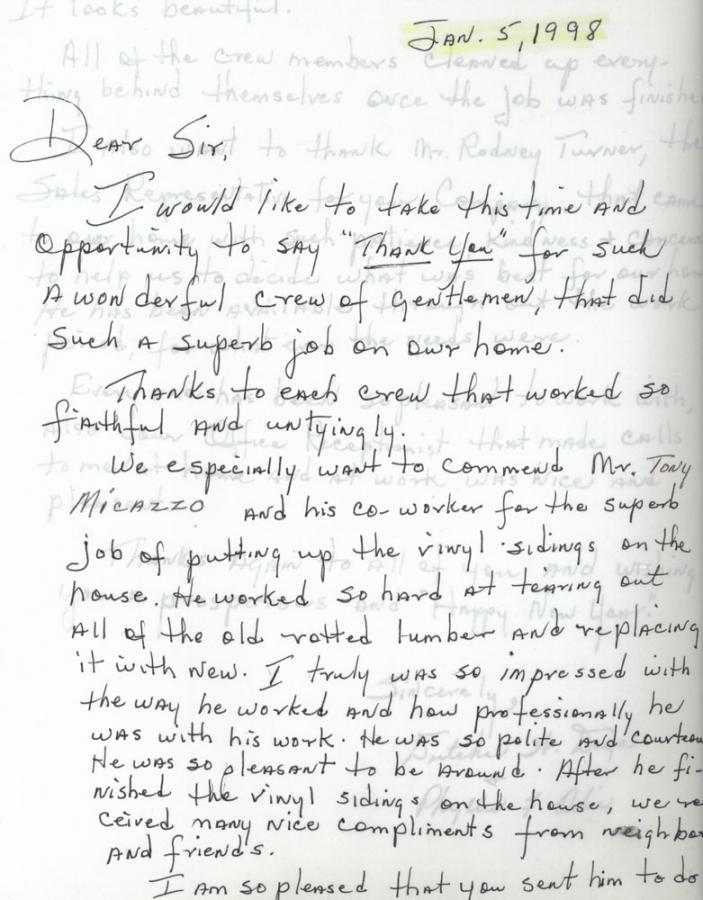 JAN. 5, 1998
Dear Sir,
I would like to take this time and
opportunity to say "Thank You" for such
a wonderful crew of gentlemen, that did
such a superb job on our home.
Thanks to each crew that worked so
faithful and untyingly.
We especially want to commend Mr. Tony
Micazzo and his co-worker for the superb
job of putting up the vinyl sidings on the
house. He worked so hard at tearing out
all of the old rotted lumber and replacing
it with new. I truly was so impressed with
the way he worked and how professionally he
was with his work. He was so polite and courteou
He was so pleasant to be around. After he fi-
nished the vinyl sidings on the house, we re
ceived many nice compliments from neighbo
and friends.
I am so pleased that you sent him to do